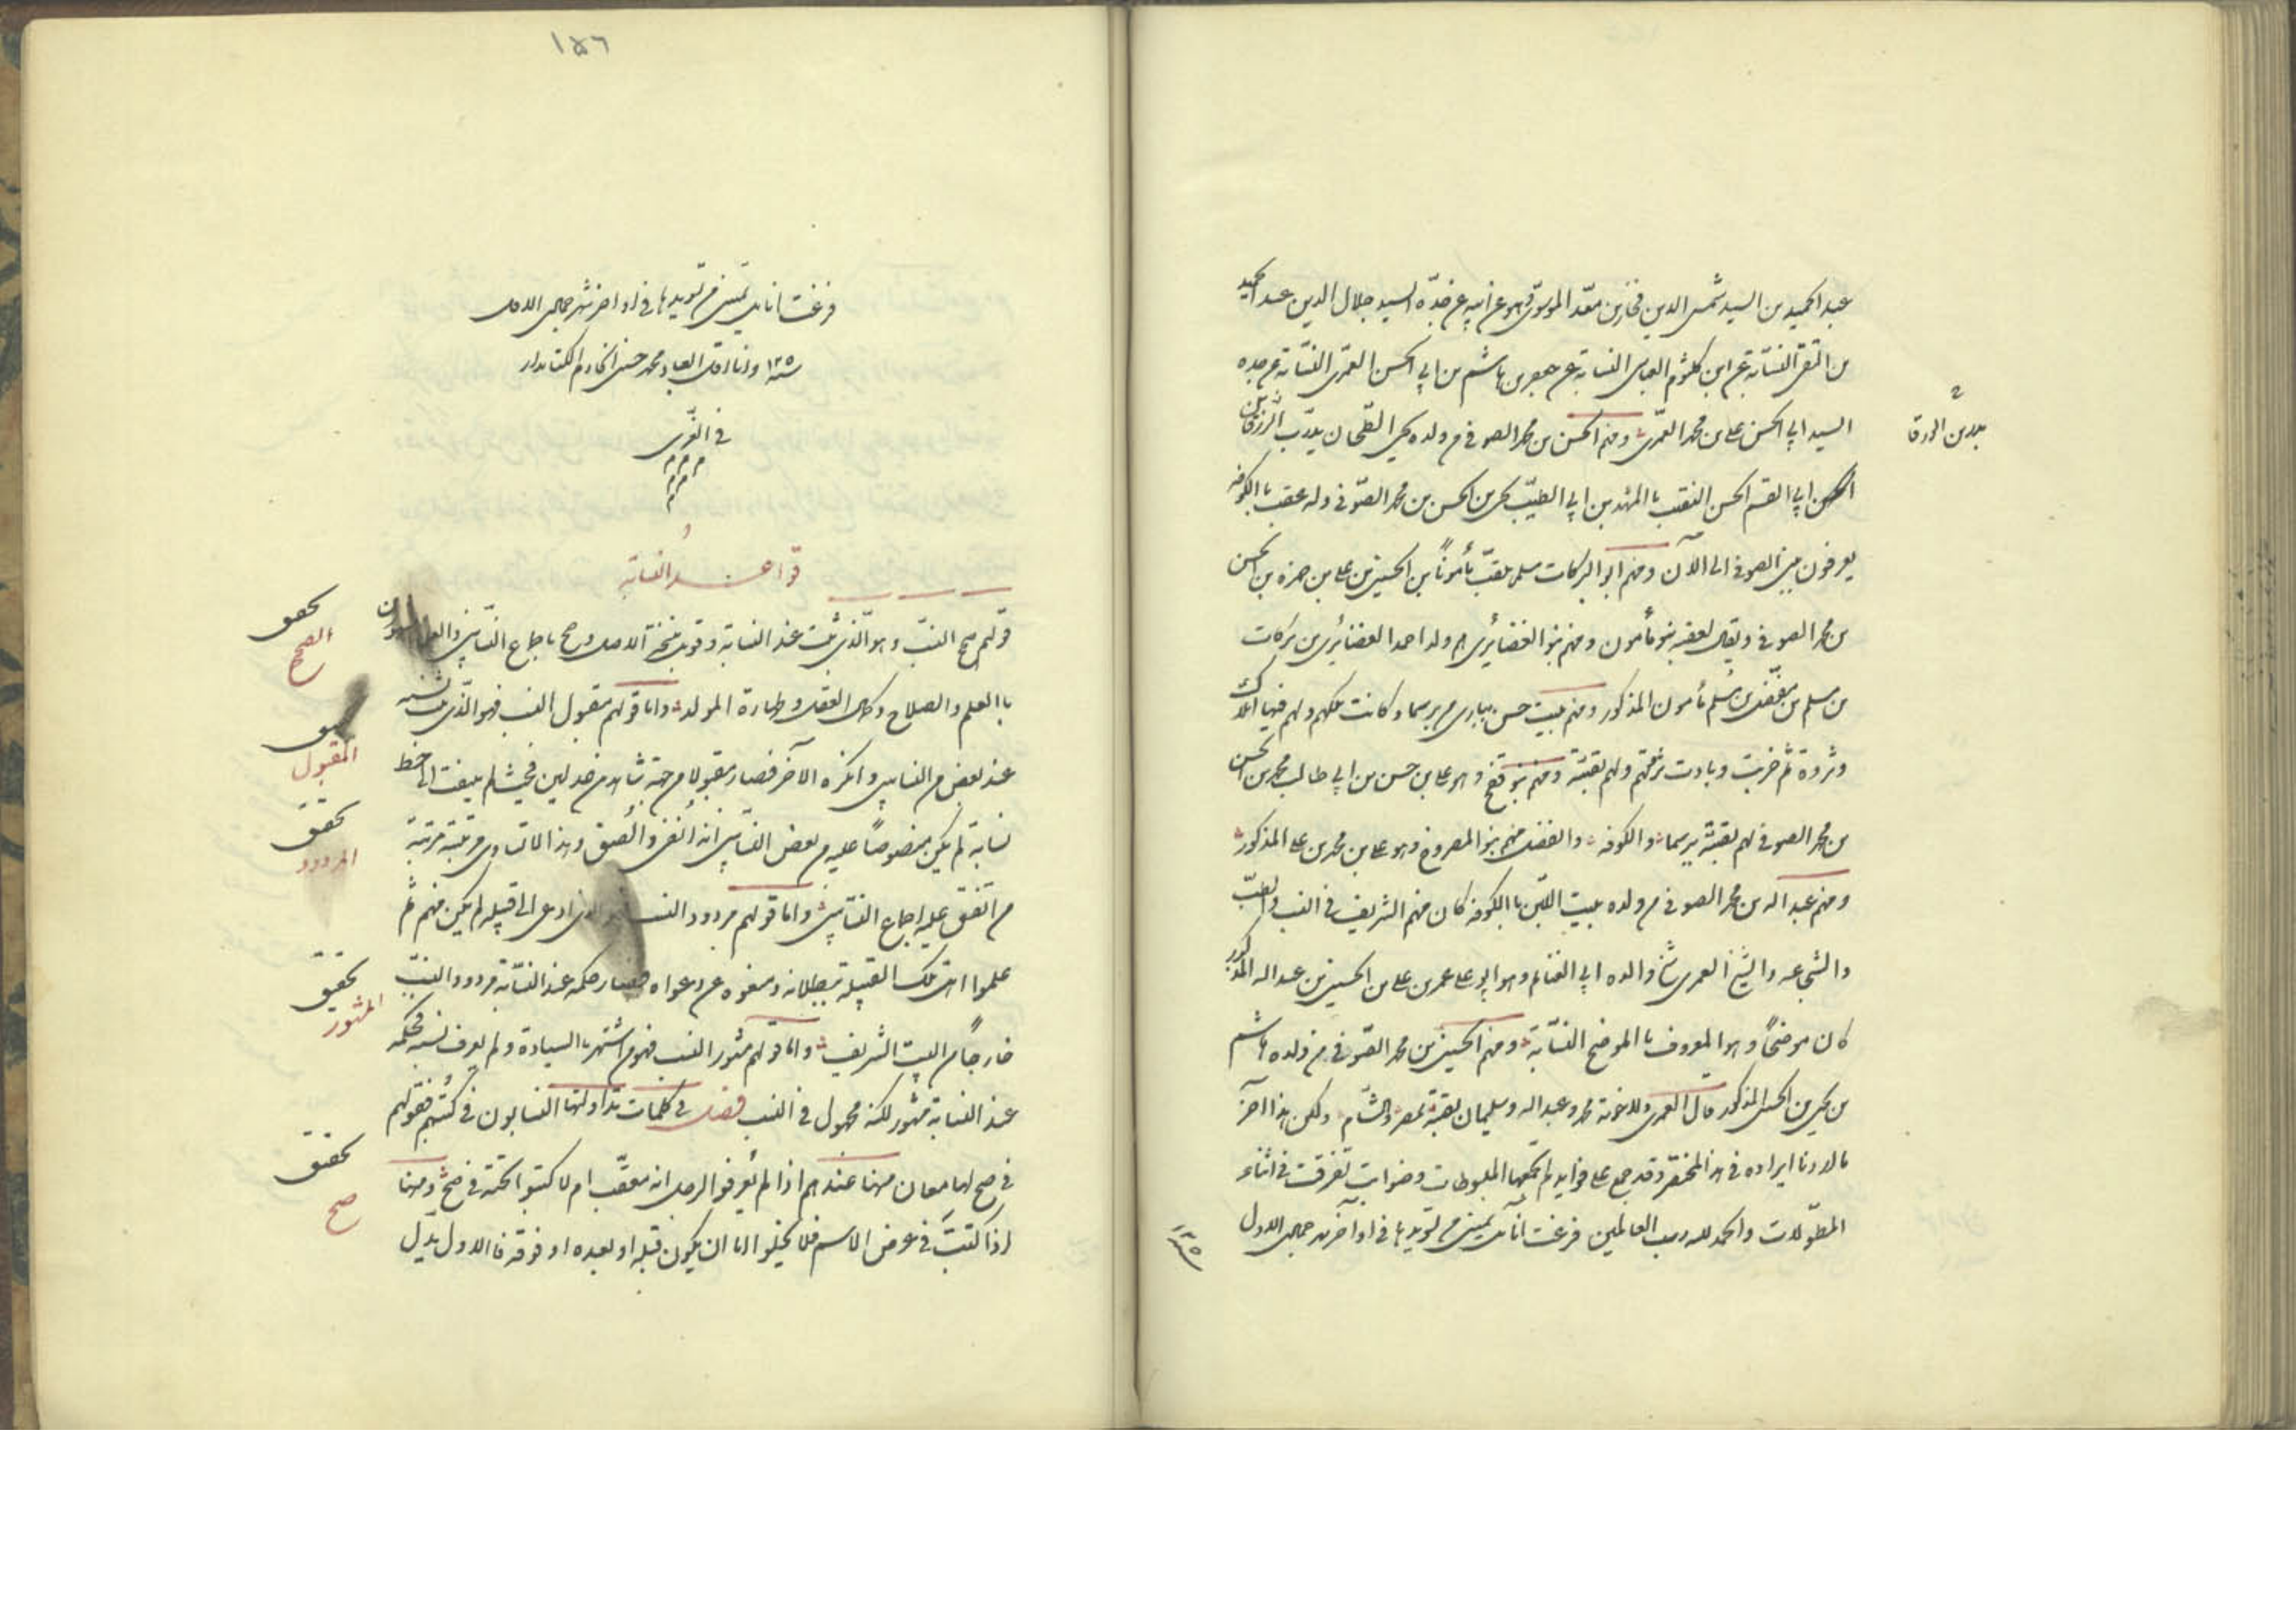 عبد الحميد بن السيد شمس الدين فخار بن معد الموسوى وهو عن ابيه عن جده السيد جلال الدين عبد الحميد
بن التقى النسابة عن ابن كلثوم العباسى النسابة عن جعفر بن هاشم بن ابى الحسن العمرى النسابة عن جده
السيد ابى الحسن على بن محمد العمرى ومنهم الحسن بن محمد الصوفى من ولده يحيى الطحان
ابى القسم الحسن النقيب بالمهد بن ابى الطيب يحيى بن الحسن بن محمد الصوفى وله عقب بالكوفة
يعرفون ببنى الصوفى الى الآن ومنهم ابو البركات مسلم يلقب مأمونا بن الحسين بن على بن حمزه بن الحسن
بن محمد الصوفى ويقال لعقبه بنو مأمون ومنهم بنو الغضائرى ولد احمد الغضائرى بن بركات
بن مسلم بن مفضل بن مسلم مأمون المذكور ومنهم بيت حسن ببارى من بيرسما وكانت ملكهم ولهم فيها املاك
وثروة ثم خربت وبادت ثروتهم ولهم بقية ومنهم بنو قفح وهو على بن حسن بن ابى طالب محمد بن الحسن
بن محمد الصوفى لهم بقية بيرسما والكوفه والفضل منهم بنو المصروخ وهو على بن محمد بن على المذكور
ومنهم عبد اله بن محمد الصوفى من ولده بيت اللبن بالكوفة كان منهم الشريف فى النسب
والشجاعه والشيخ العمرى شيخ والده ابى الغنائم وهو ابو على عمر بن على بن الحسين بن عبد اله المذكور
كان موضحا وهو المعروف بالموضح النسابة ومنهم الحسين بن محمد الصوفى فمن ولده هاشم
بن يحيى بن الحسين المذكور قال العمرى وللاخوته محمد وعبد اله وسليمان بقية بمصر والشام ولكن هذا آخر
ما اردنا ايراده فى هذا المختصر وقد جمع على فوايد لم تجمعها المبسوطات وضوابط تفرقت فى اثناء
المطولات والحمد لله رب العالمين فرغت انا من تسويدها فى اواخر شهر جمادى الاول
١٣٥
١٥٦
فرغت انا من تسويدها فى اواخر شهر جمادى الاول
سنه ١٣٥ وانا اقل العباد محمد حسن الخادم الكتابدار
فى الغرى
م م م
قواعد النسابة
قولهم صحيح النسب وهو الذى ثبت عند النسابة وقوبل بنسخة الاصل وصح باجماع النسابين
بالعلم والصلاح وكمال العقل وطهارة المولد واما قولهم مقبول النسب فهو الذى ثبت نسبه
عند بعض من النسابين وانكره الآخر فصار مقبولا من جهة شاهدين عدلين فحينئذ لم يلتفت الى خط
نسابة لم يكن منصوصا عليه من بعض النسابين انه ولهذا لا تساوى مرتبته مرتبة
من اتفق عليه اجماع النسابين واما قولهم مردود النسب فهو الذى ادعى الى قبيلة لم يكن منهم ثم
علموا ان تلك القبيلة ببطلانه ومنعوه عن دعواه فصار حكمه عند النسابة مردود النسب
خارجا من البيت الشريف واما قولهم مشهور النسب فهو من اشتهر بالسيادة ولم يعرف نسبه فحكمه
عند النسابة مشهور لكنه مجهول فى النسب فصل فى كلمات تداولتها النسابون فى كتبهم فقولهم
فى صح لها معان منها عندهم اذا لم يعرفوا الرجل انه معقب ام لا كتبوا تحته فى صح ومنها
اذا كتبت فى عوض الاسم فلا يخلو اما ان يكون قبله او بعده او فوقه فالاول يدل
تحقيق
الصحيح
المقبول
تحقيق
المردود
تحقيق
المشهور
تحقيق
صح